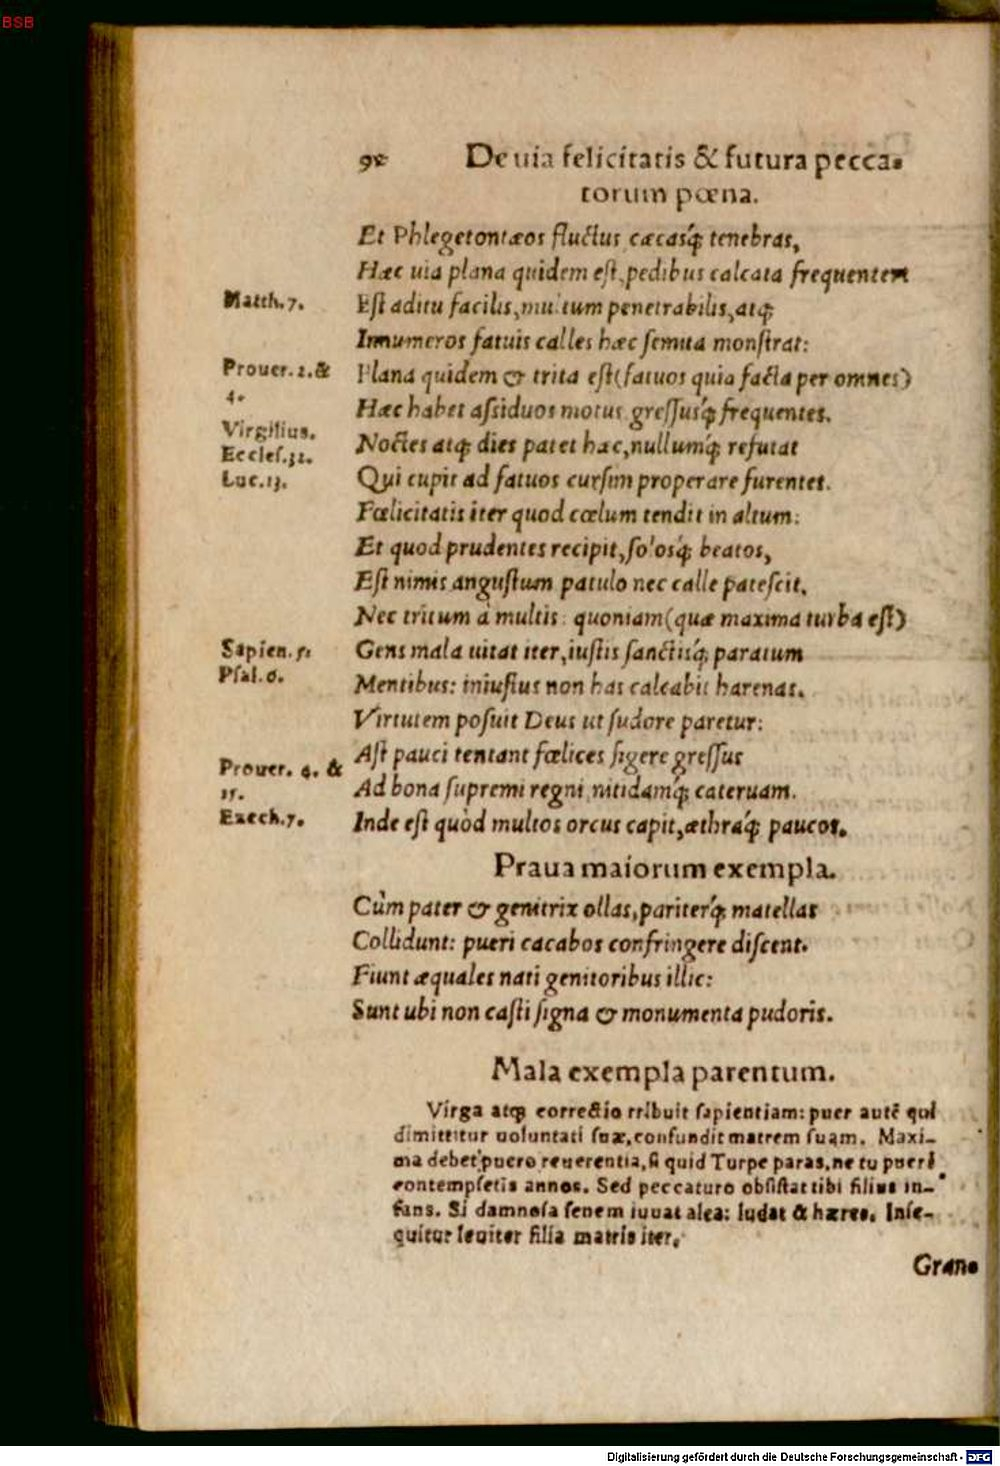 BSB
De uia felicitatis & futura pecca-
torum pœna.
Et Phlegetontæos fluctus cæcasq́; tenebras,
Hæc uia plana quidem est, pedibus calcata frequentem
Matth. 7.
Est aditu facilis, multum penetrabilis, atq;
Innumeros fatuis calles hæc semita monstrat:
Prouer. 2. &
4.
Plana quidem & trita est (fatuos quia facta per omnes)
Hæc habet assiduos motus gressusq́; frequentes.
Virgilius.
Noctes atq; dies patet hæc, nullumq́; refutat
Eccles. 32.
Luc. 13.
Qui cupit ad fatuos cursim properare furentes.
Fœlicitatis iter quod cœlum tendit in altum:
Et quod prudentes recipit, solosq́; beatos,
Est nimis angustum patulo nec calle patescit,
Nec tritum à multis: quoniam (quæ maxima turba est)
Sapien. 5.
Gens mala uitat iter, iustis sanctisq́; paratum
Psal. 6.
Mentibus: iniustus non has calcabit harenas.
Virtutem posuit Deus ut sudore paretur:
Ast pauci tentant fœlices figere gressus
Prouer. 4. &
15.
Ad bona supremi regni nitidamq́; cateruam.
Ezech. 7.
Inde est quòd multos orcus capit, æthraq́; paucos.
Praua maiorum exempla.
Cùm pater & genitrix ollas, pariterq́; matellas
Collidunt: pueri cacabos confringere discent.
Fiunt æquales nati genitoribus illic:
Sunt ubi non casti signa & monumenta pudoris.
Mala exempla parentum.
Virga atq; correctio tribuit sapientiam: puer autē qui
dimittitur uoluntati suæ, confundit matrem suam. Maxi-
ma debet puero reuerentia, si quid Turpe paras, ne tu pueri
contempseris annos. Sed peccaturo obsistat tibi filius in-
fans. Si damnosa senem iuuat alea: ludat & hæres. Inse-
quitur leuiter filia matris iter.
Grano
Digitalisierung gefördert durch die Deutsche Forschungsgemeinschaft - DFG